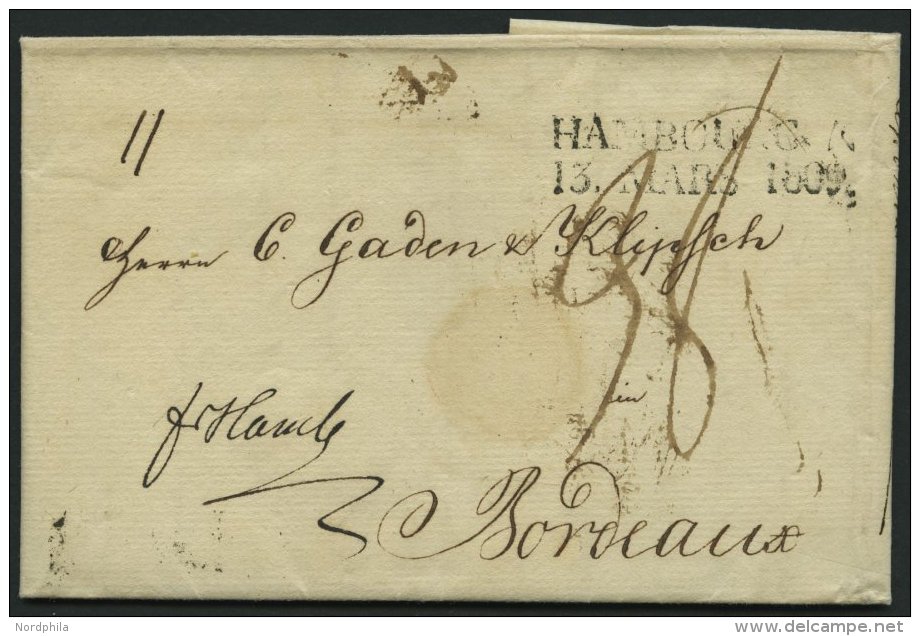 11
HAMBOURG
13. MARS 1809.
38
Herrn C. Gaden & Klipsch
in
fr Hamb
Bordeaux
Nordphila
www.delcampe.net